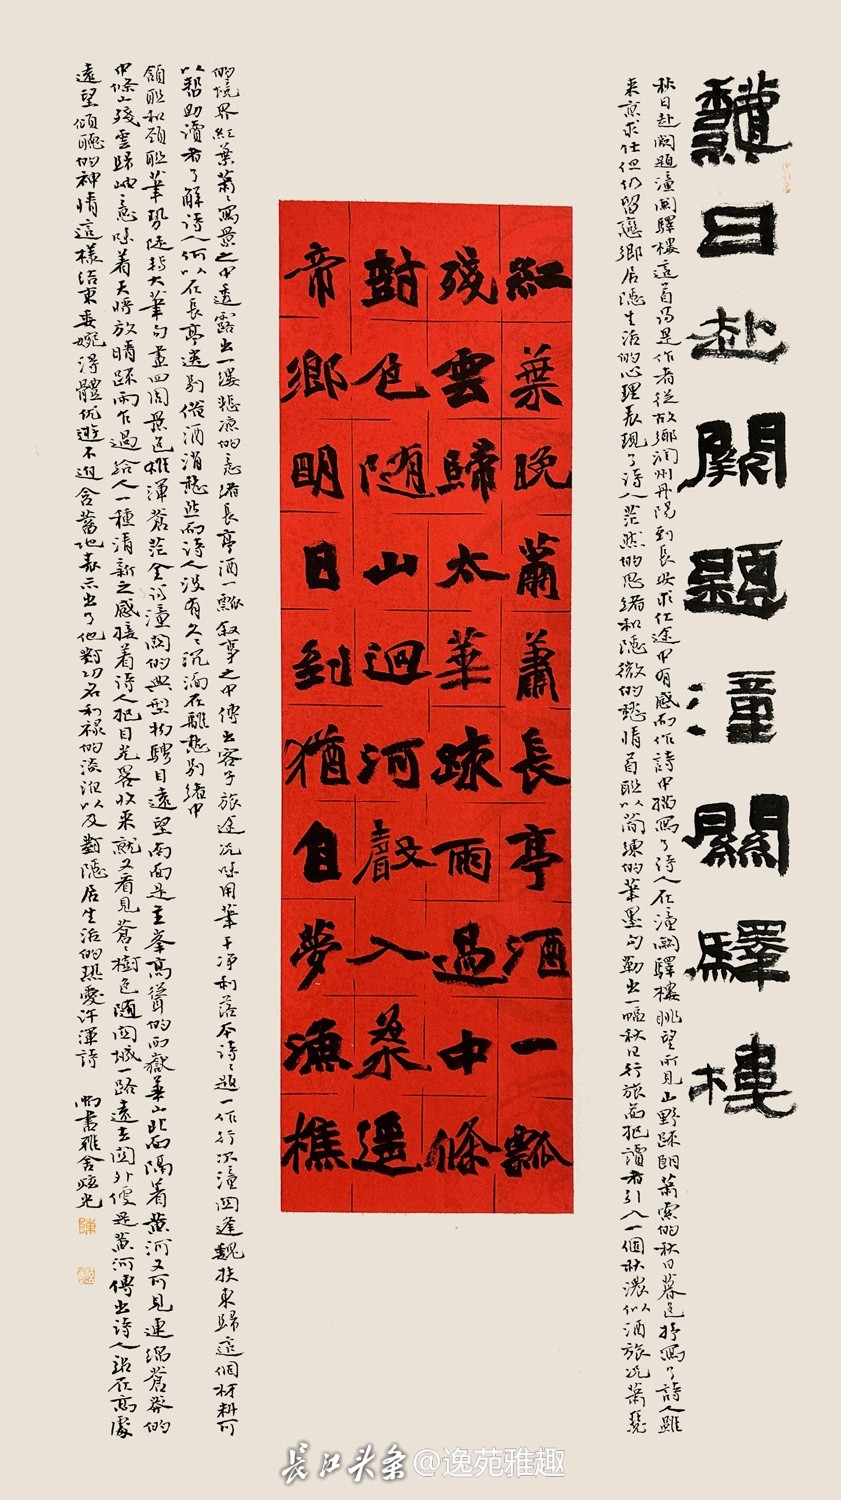 龝日赴闕題潼關驛樓
秋日赴闕題潼關驛樓這首詩是作者從故鄉潤州丹陽到長安求仕途中有感而作詩中描寫了詩人在潼關驛樓眺望所見山野疎朗蕭索的秋日暮色抒寫了詩人雖
來京求仕但仍留戀鄉居隱生活的心理表現了詩人茫然的思緒和隱微的愁情首聯以簡練的筆墨勾勒出一幅秋日行旅圖把讀者引入一個秋濃似酒旅況蕭瑟
紅葉晚蕭蕭長亭酒一瓢
殘雲歸太華疎雨過中條
尌色随山迥河聲入遥
帝鄉明日到猶自夢漁樵
的境界紅葉蕭々寫景之中透露出一縷悲涼的意緒長亭酒一瓢敘事之中傳出客子旅途況味用筆干净利落本詩々題一作行次潼關逢魏扶東歸這個材料可
以幫助讀者了解詩人何以在長亭送別借酒消愁然而詩人没有久々沉湎在離愁別緒中
頷聯和頸聯筆勢陡轉大筆勾畫四周景色雄渾蒼茫全詩潼關的典型物騁目遠望南面是主峯高聳的西嶽華山北面隔着黃河又可見連綿蒼莽的
中條山殘雲歸岫意味着天將放晴疎雨乍過給人一種清新之感接着詩人把目光畧收來就又看見蒼々樹色隨關城一路遠去關外便是黃河傳出詩人站在高處
遠望傾聽的神情這樣結束委婉得體優遊不迫含蓄地表示出了他對功名利祿的淡泊以及對隱居生活的熱愛許渾詩 書雅舍炫光
长江头条@逸苑雅趣